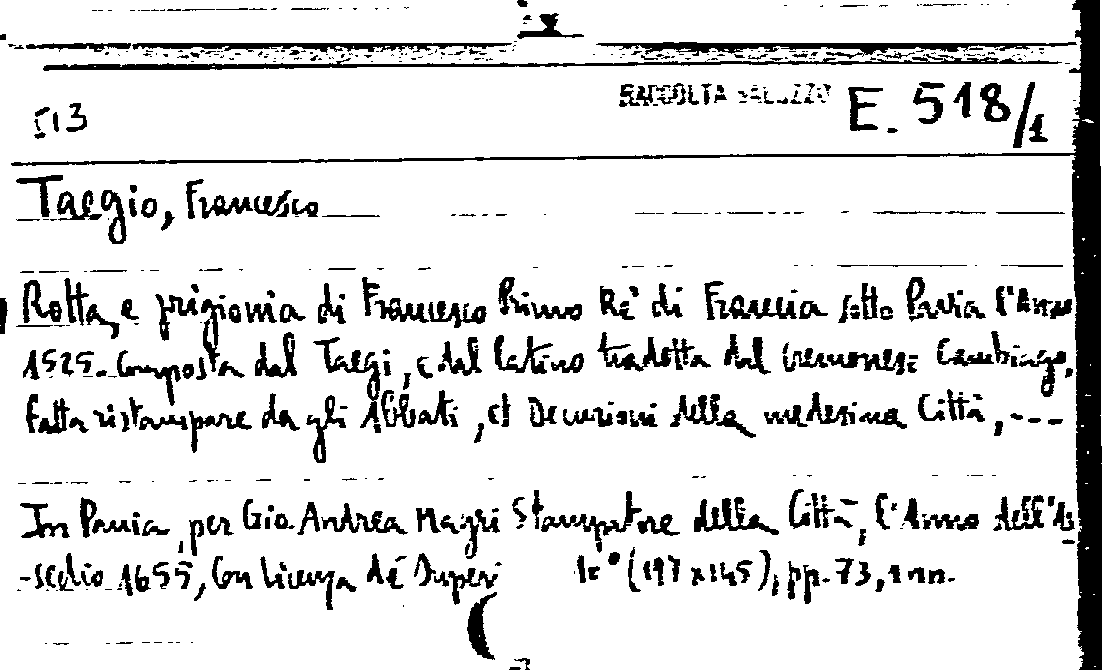 513 RACCOLTA SALUZZO E. 518/1
Taegio, Francesco
Rotta, e prigionia di Francesco Primo Rè di Francia sotto Pavia l'Anno
1525. Composta dal Taegi, e dal latino tradotta dal Cremonese Cambiago,
fatta ristampare da gli Abbati, et Decurioni della medesima Città, ---
In Pavia, per Gio. Andrea Magri Stampatore della Città, l'Anno dell'As
-sedio 1655, Con licenza dé Superi (197 x 145), pp. 73, 1 nn.